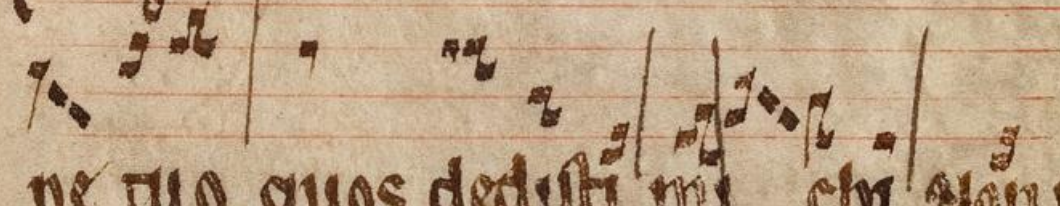 ne tuo quos dedisti mi chi